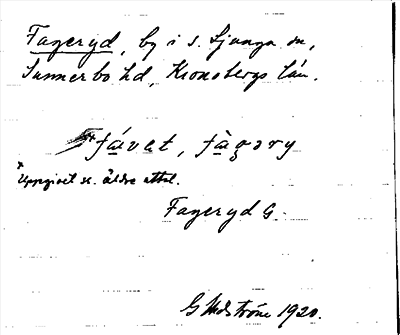 Fageryd, by i s. Ljunga sn,
Sunnerbo hd, Kronobergs län.
fávat, fàgəry
x Uppgivet ss. äldre uttal.
Fageryd G.
G Hedström 1920.